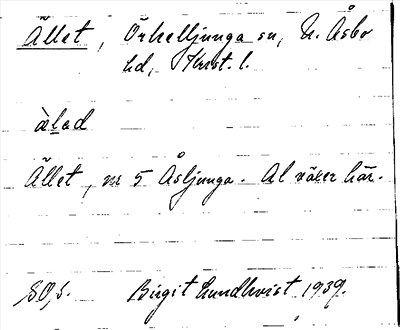 Ället, Örkelljunga sn, N. Åsbo
hd, Krist. l.
àlad
Ället, nr 5 Åsljunga. Al växer här.
Birgit Lundkvist 1939.